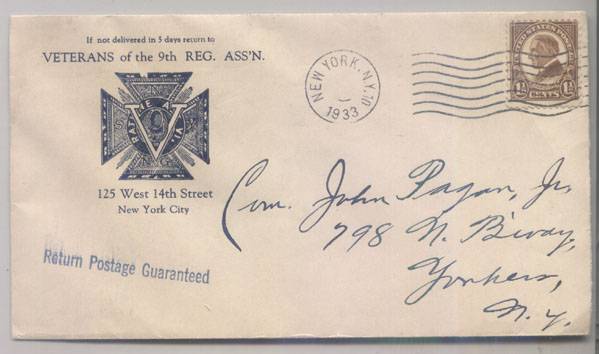 If not delivered in 5 days return to
VETERANS of the 9th REG. ASS'N.
RATIONE
V
9
VI
125 West 14th Street
New York City
Return Postage Guaranteed
NEW YORK, N.Y. 10
1933
UNITED STATES POSTAGE
1½ CENTS 1½
Com. John Pagan, Jr.
798 N. B'way,
Yonkers,
N.Y.